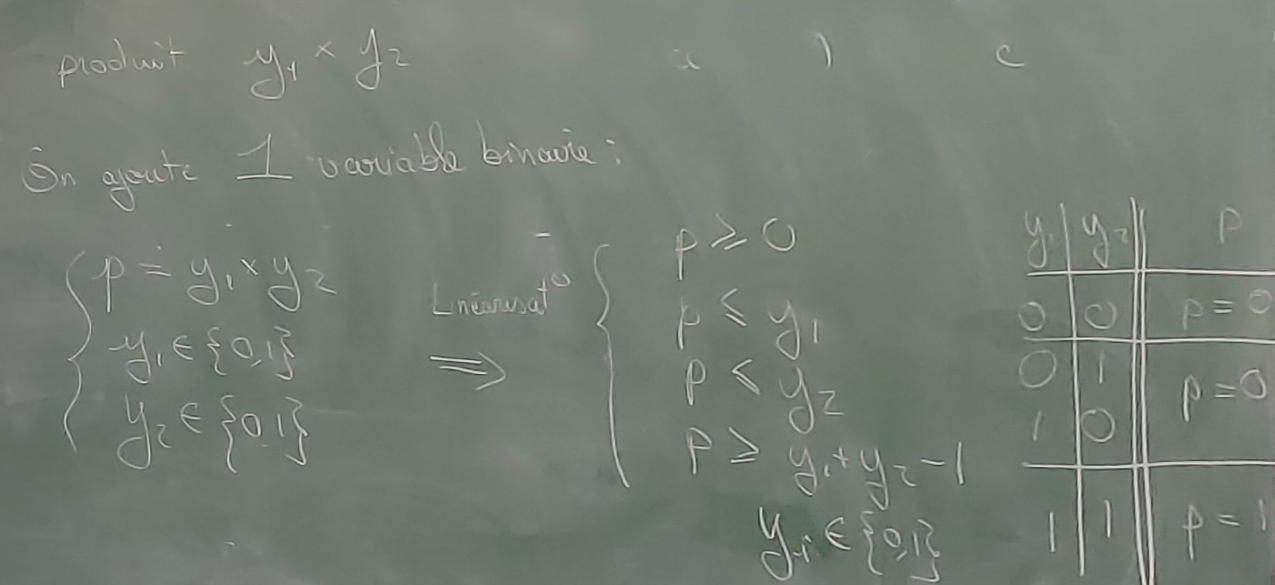 produit y₁ × y₂
On ajoute 1 variable binaire :
p = y₁ × y₂
y₁ ∈ {0,1}
y₂ ∈ {0,1}
Linéarisat°
⟹
p ≥ 0
p ≤ y₁
p ≤ y₂
p ≥ y₁ + y₂ - 1
y₁ ∈ {0,1}
y₁ | y₂ || p
0 | 0 || p = 0
0 | 1 || p = 0
1 | 0
1 | 1 || p = 1